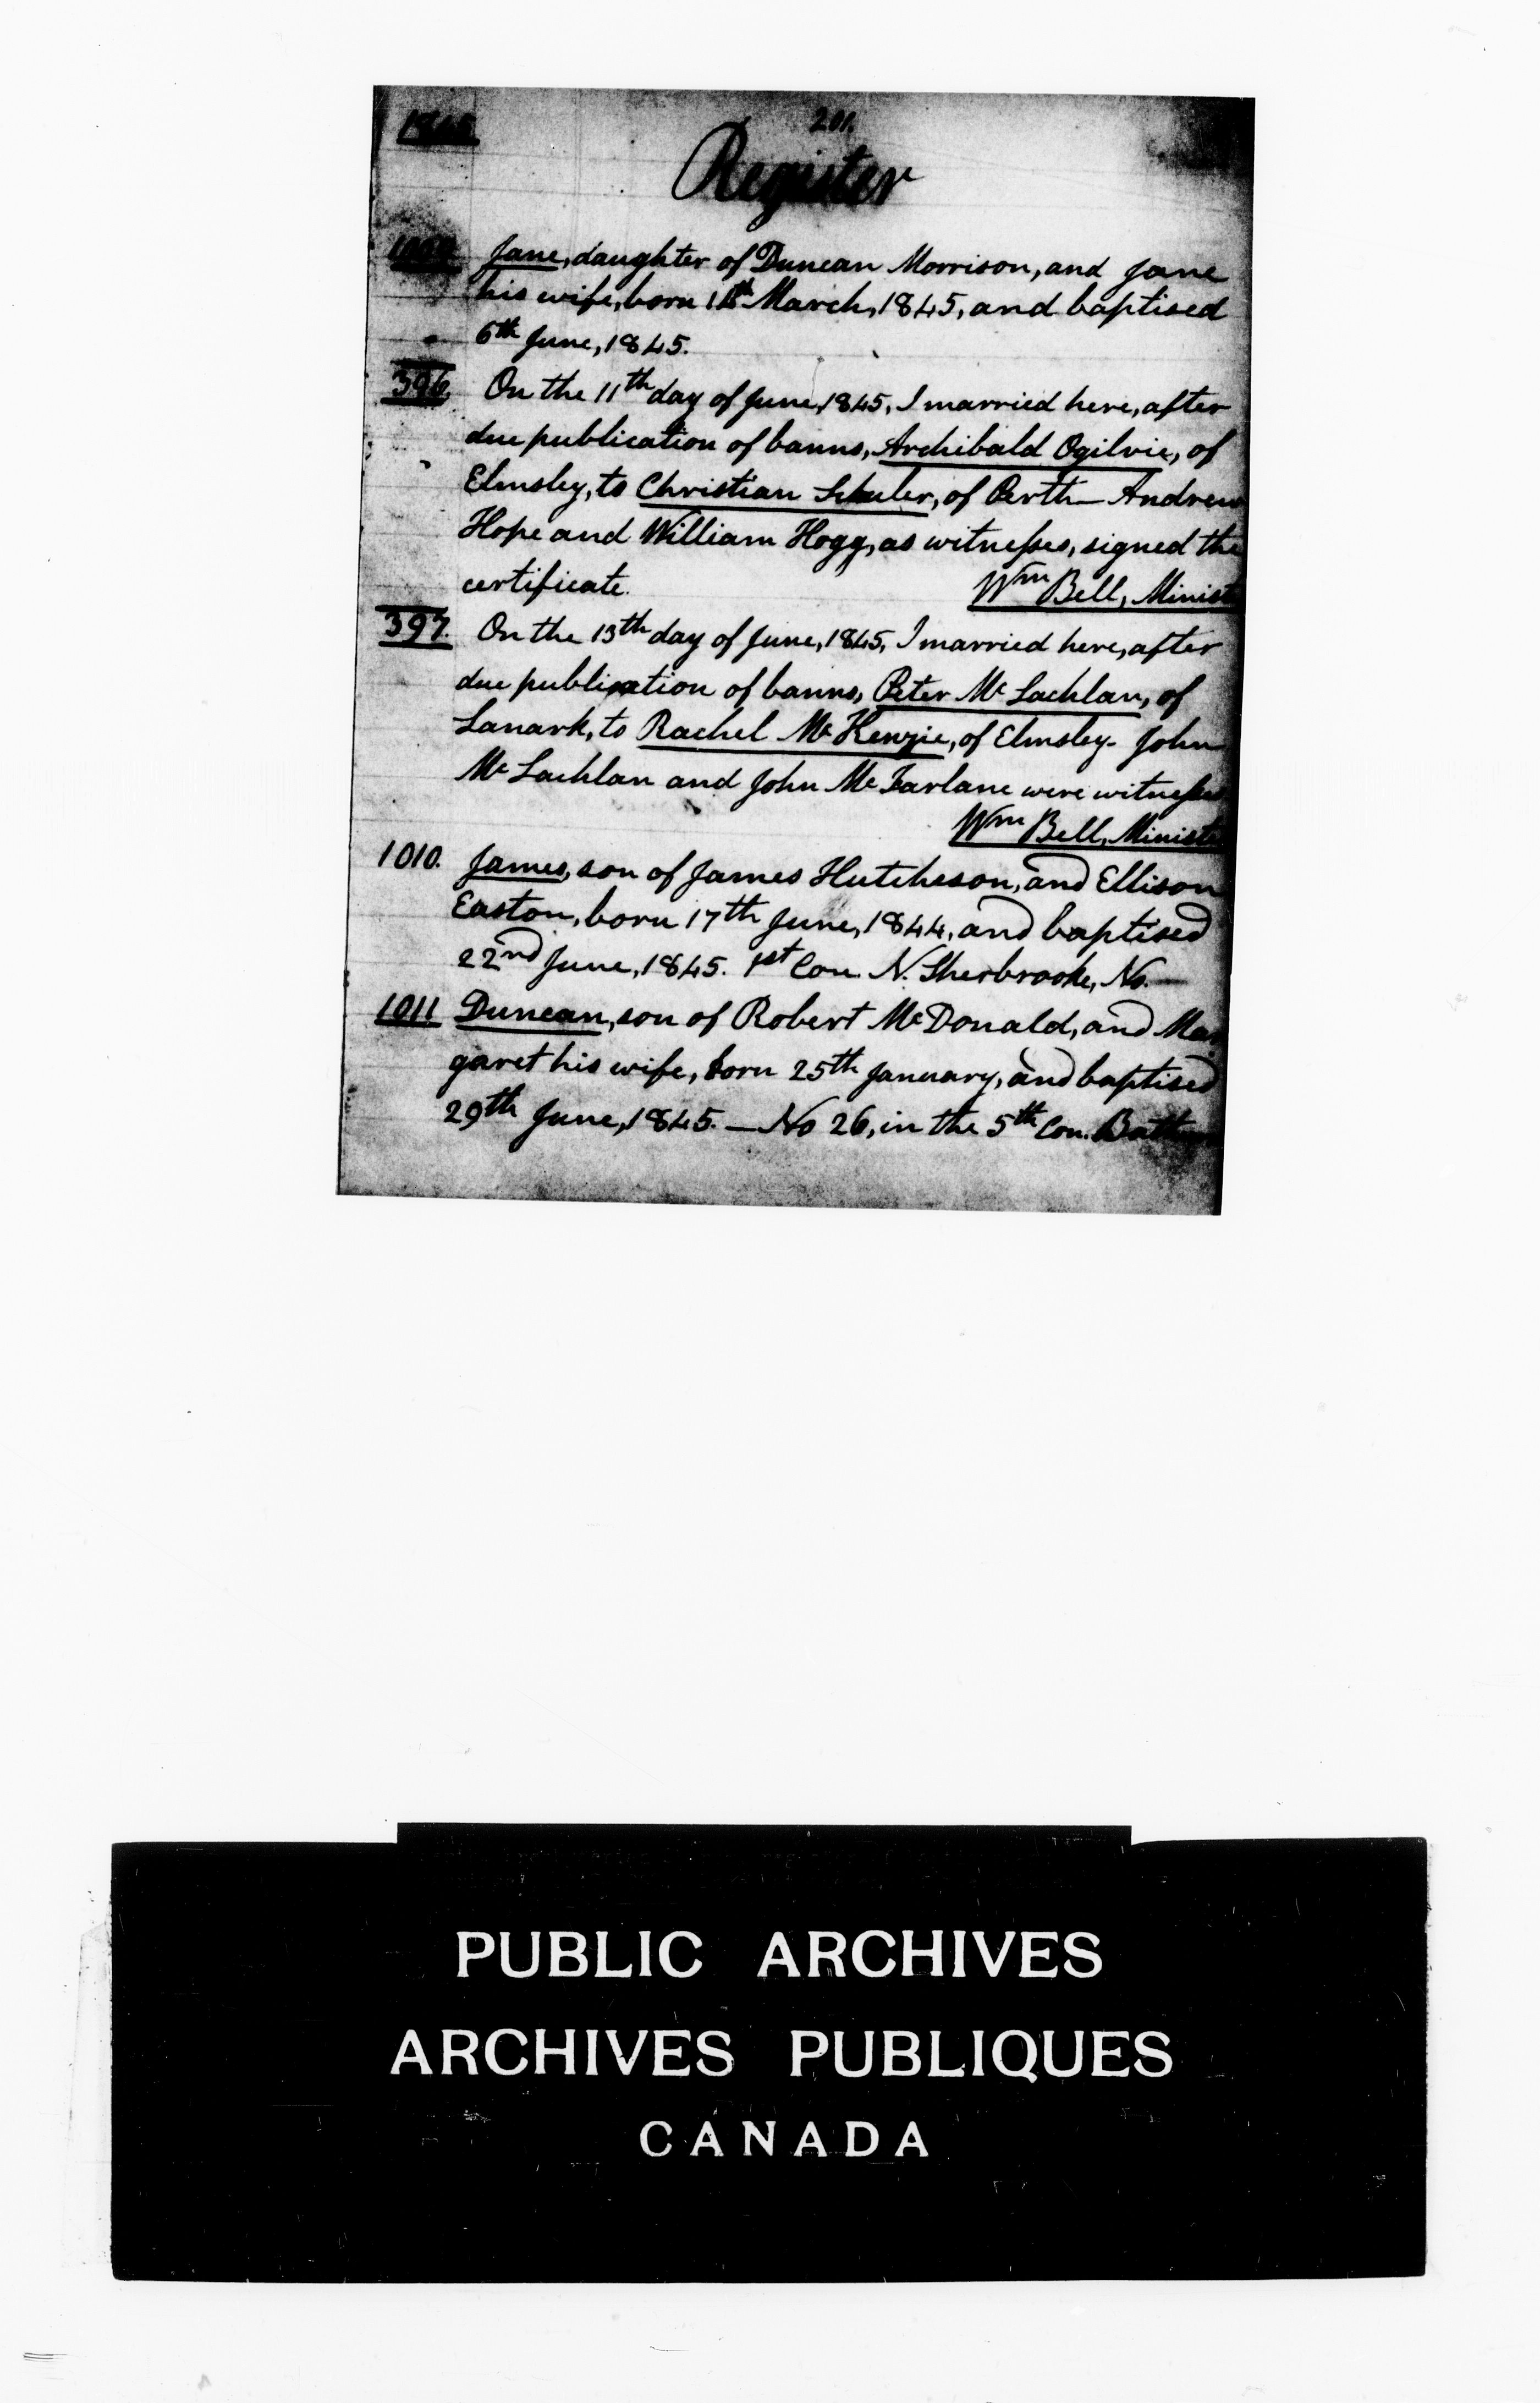 1845
201.
Register
1009. Jane, daughter of Duncan Morrison, and Jane
his wife, born March, 1845, and baptised
6th June, 1845.
396. On the 11th day of June, 1845, I married here, after
due publication of banns, Archibald Ogilvie, of
Elmsley, to Christian, of Perth — Andrew
Hope and William Hogg, as witnesses, signed the
certificate. Wm Bell, Minist
397. On the 13th day of June, 1845, I married here, after
due publication of banns, Peter Mc Lachlan, of
Lanark, to Rachel Mc Kenzie, of Elmsley. John
Mc Lachlan and John Mc Farlane were witnesses
Wm Bell, Ministe
1010. James, son of James Hutcheson, and Ellison
Easton, born 17th June, 1844, and baptised
22nd June, 1845. 1st Con. N. Sherbrooke, No. —
1011 Duncan, son of Robert Mc Donald, and Mar
garet his wife, born 25th January, and baptised
29th June, 1845. — No 26, in the 5th Con. Bath
PUBLIC ARCHIVES
ARCHIVES PUBLIQUES
CANADA